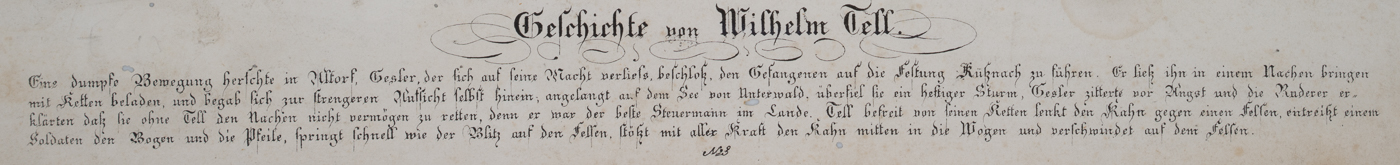 Geschichte von Wilhelm Tell.
Eine dumpfe Bewegung herschte in Altorf, Gesler, der sich auf seine Macht verliess, beschloß, den Gefangenen auf die Festung Küßnach zu führen. Er ließ ihn in einem Nachen bringen
mit Ketten beladen, und begab sich zur strengeren Aufsicht selbst hinein; angelangt auf dem See von Unterwald, überfiel sie ein heftiger Sturm, Gesler zitterte vor Angst und die Ruderer er-
klärten daß sie ohne Tell den Nachen nicht vermögen zu retten, denn er war der beste Steuermann im Lande. Tell befreit von seinen Ketten lenkt den Kahn gegen einen Felsen, entreißt einem
Soldaten den Bogen und die Pfeile, springt schnell wie der Blitz auf den Felsen, stößt mit aller Kraft den Kahn mitten in die Wogen und verschwindet auf dem Felsen.